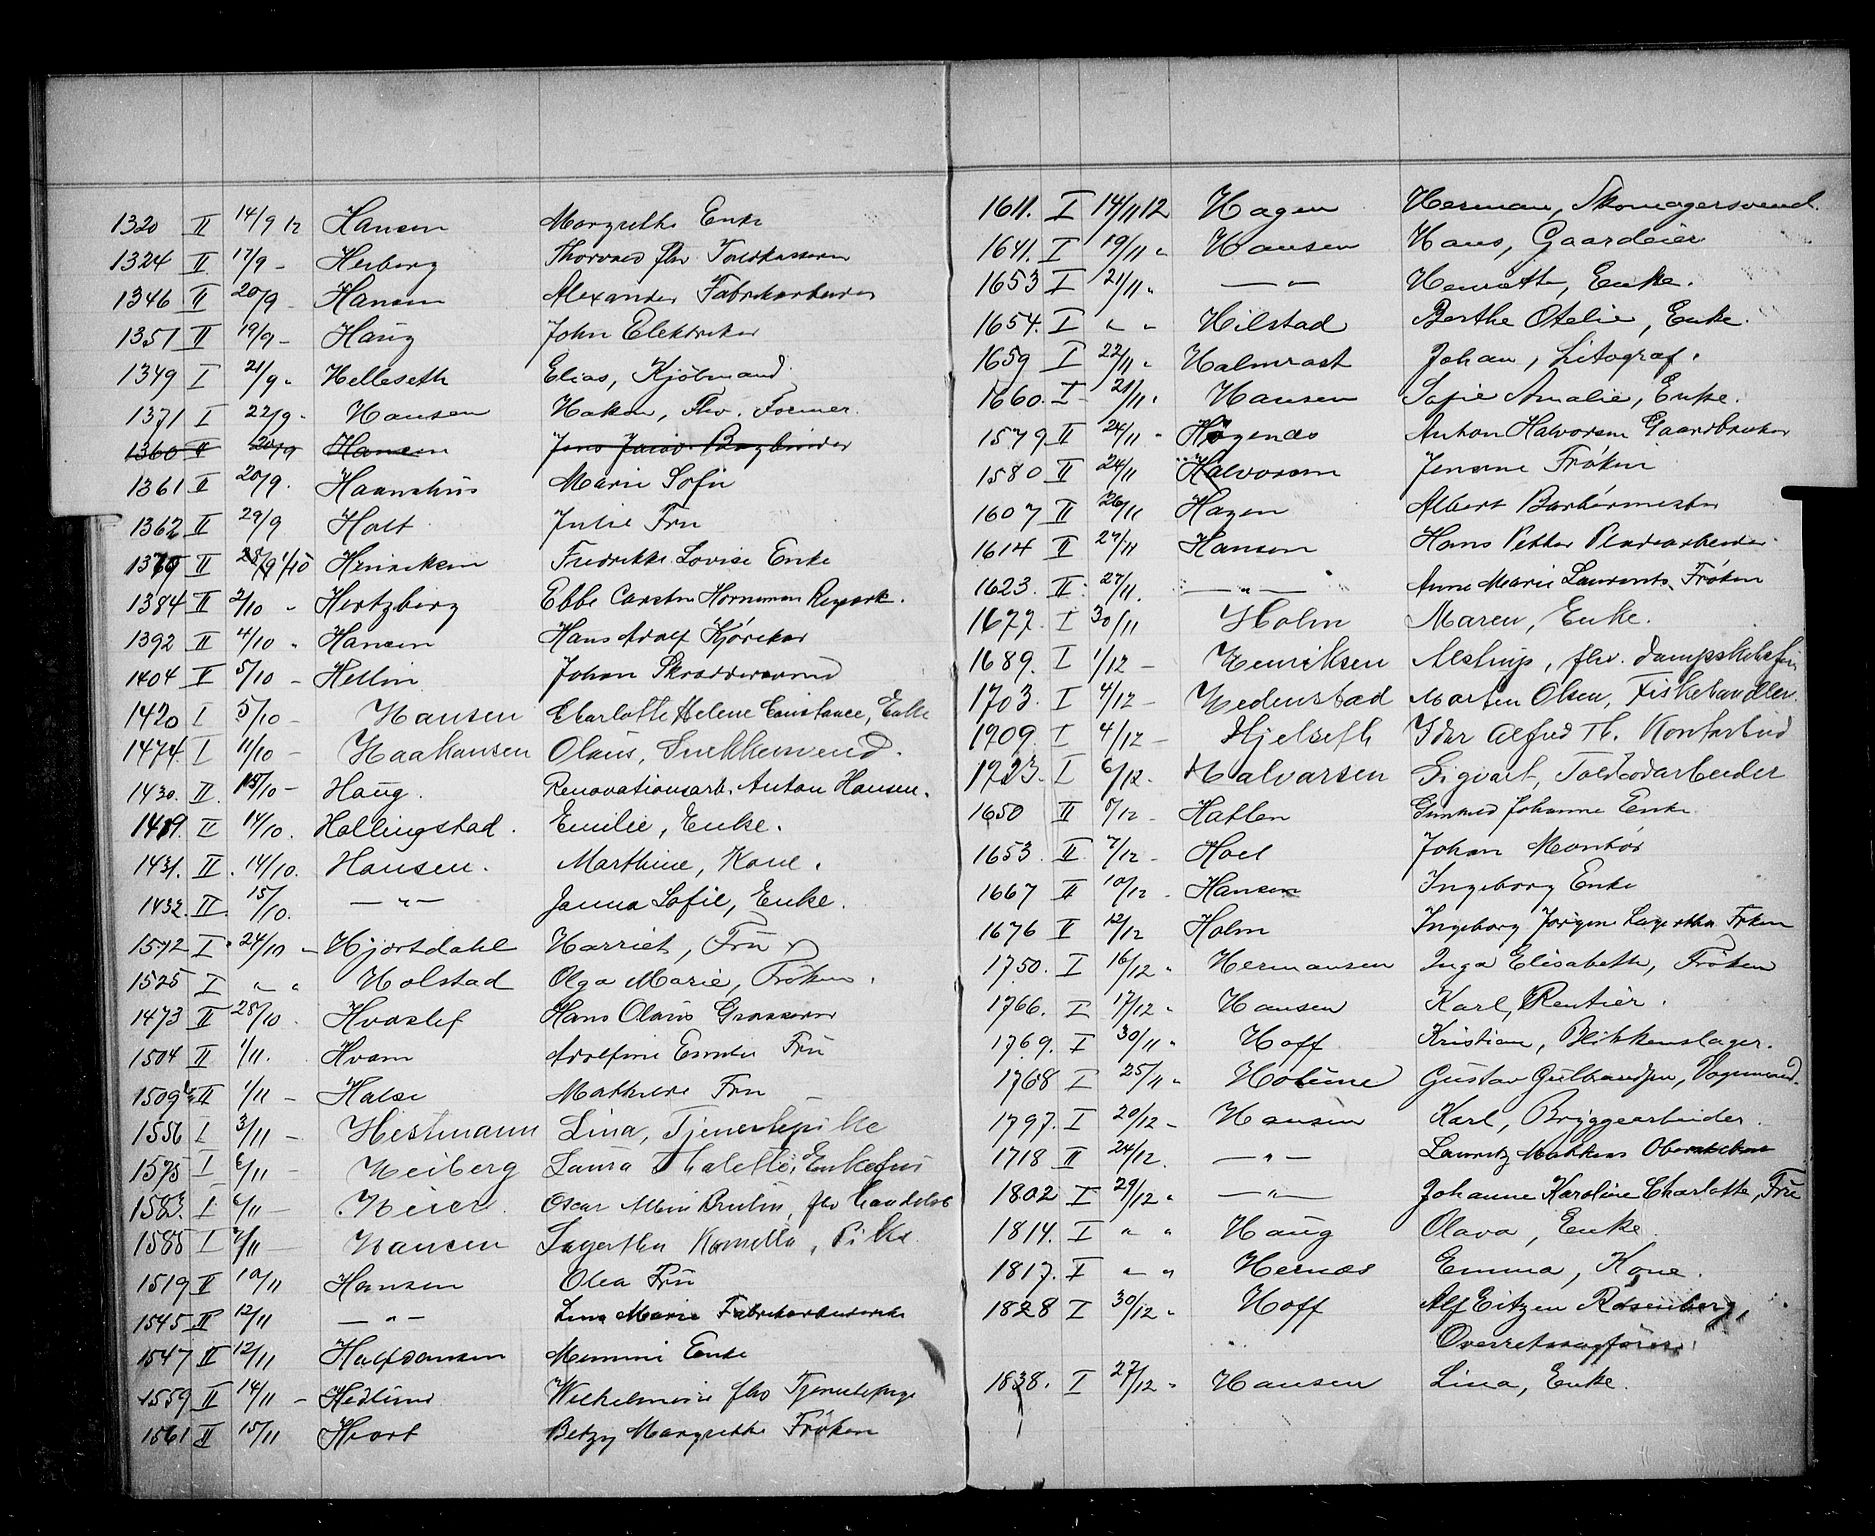 1320 II 14/9 12 Hansen Margrethe Enke
1324 II 17/9 - Heiberg Thorvald fhv. Toldkasserer
1346 II 20/9 Hansen Alexander Fabrikarbeider
1351 II 19/9 - Haug John Elektriker
1349 I 21/9 „ Helleseth Elias, Kjøbmand.
1371 I 22/9 - Hansen Hakon, fhv. Former.
1360 II 20/9 Hansen Jens Jacob Bogbinder
1361 II 20/9. Haanshus Marie Sofie
1362 II 29/9 Holt Julie Fru
II 1/10 Henriksen Fredrikke Lovise Enke
1384 II 2/10 „ Hertzberg Ebbe Carsten Horneman
1392 II 4/10 „ Hansen Hans Adolf Kjørekar
1404 II 5/10 - Hellin Johan Skræddersvend
1420 I 5/10 - Hansen Charlotte Helene Constance, Enke
1474. I 11/10 - Haakansen Olaus, Snekkersvend.
1430. II /10 - Haug. Renovationsarb. Anton Hansen.
1419. II 14/10. Hollingstad. Emilie, Enke.
1431. II. 14/10. Hansen. Marthine, Kone.
1432. II. 15/10. — „ — Janna Sofie, Enke.
1512 I 24/10 - Hjortdahl Harriet, Fru
1525 I „ „ Holstad Olga Marie, Frøken.
1473 II 28/10. Hvoslef Hans Olaus Grosserer
1504 II 1/11. Hvam Adolfine Emilie Fru
1509 II 1/11 - Halse Mathilde Fru
1556 I 3/11 - Hestmann Lina, Tjenestepike
1575 I 6/11 - Heiberg Laura Thalette, Enkefru
1583. I 6/11 - Heier Oscar
1585 I 7/11 - Hansen Lagertha Kamilla, Pike.
1519 II 10/11 Hansen Olea Fru
1545 II 12/11 — „ — Lina Marie Fabrikarbeiderske
1547 II 12/11 Halfdansen Memmi Enke
1559 II 14/11 - Hedlund Wilhelmine fhv Tjenestepige
1561 II 15/11 Hvort Betzy Margrethe Frøken
1611. I 14/11 12 Hagen Herman, Skomagersvend.
1641. I 19/11 „ Hansen Hans, Gaardeier
1653 I 21/11 „ — „ — Henriette, Enke.
1654. I „ „ Hilstad Berthe Otelie, Enke.
1659 I 22/11 „ Halmrast Johan, Litograf.
1660. I 21/11 „ Hansen Sofie Amalie, Enke.
1579 II 24/11 „ Høgenæs Anton Halvorsen Gaardbruker
1580 II 24/11 Halvorsen Jensine Frøken
1607 II 26/11 Hagen Albert Barbérmester
1614 II 27/11 Hansen Hans Petter Pladearbeider.
1623. II. 27/11. — „ — Anne Marie Laurentze Frøken
1677. I 30/11 Holm Maren, Enke.
1689. I 1/12 - Henriksen Alstrup, fhv.
1703. I 4/12 - Hedenstad Morten Olsen, Fiskehandler.
1709. I 4/12 - Hjelseth Idar Alfred Th. Kontorbud
1723. I 6/12. - Halvarsen Sigvart, Toldbodarbeider
1650 II 5/12 - Hatlen Gunhild Johanne Enke
1653. II 7/12 - Hoel Johan Montør
1667 II 10/12 - Hansen Ingeborg Enke
1676 II 12/12 Holm Ingeborg Jørgine Lagertha Frøken
1750. I 16/12 „ Hermansen Inga Elisabeth, Frøken
1766. I 17/12 „ Hansen Karl, Rentier.
1769. I 30/11 „ Hoff Kristian, Blikkenslager.
1768 I 25/11 „ Holime Gustav Gulbrandsen, Vognmand.
1797. I 20/12 - Hansen Karl, Bryggearbeider.
1718 II 24/12. — „ — Lauritz Mathias
1802 I 29/12 „ — „ — Johanne Karoline Charlotte, Fru
1814. I „ „ Haug Olava, Enke.
1817. I „ „ Hernæs Emma, Kone.
1828 I 30/12 „ Hoff Alf Eitzen Rosenberg,
Overretssagfører.
1838. I 27/12 „ Hansen Lina, Enke.